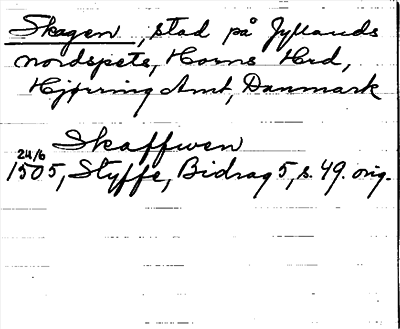 Skagen, stad på Jyllands
nordspets, Horns Hrd,
Hjørring Amt, Danmark
Skaffwen
24/6
1505, Styffe, Bidrag 5, s. 49. orig.